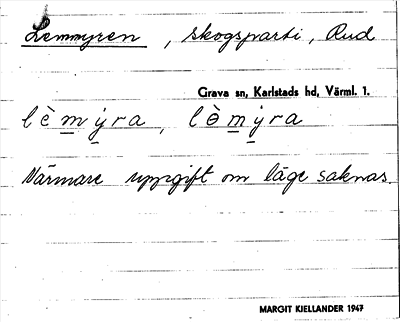 Lemmyren, skogsparti, Rud
Grava sn, Karlstads hd, Värml. 1.
lè m̲ ý̲ r a, lɵ̀ m̲ ý̲ r a
Närmare uppgift om läge saknas.
MARGIT KJELLANDER 1947